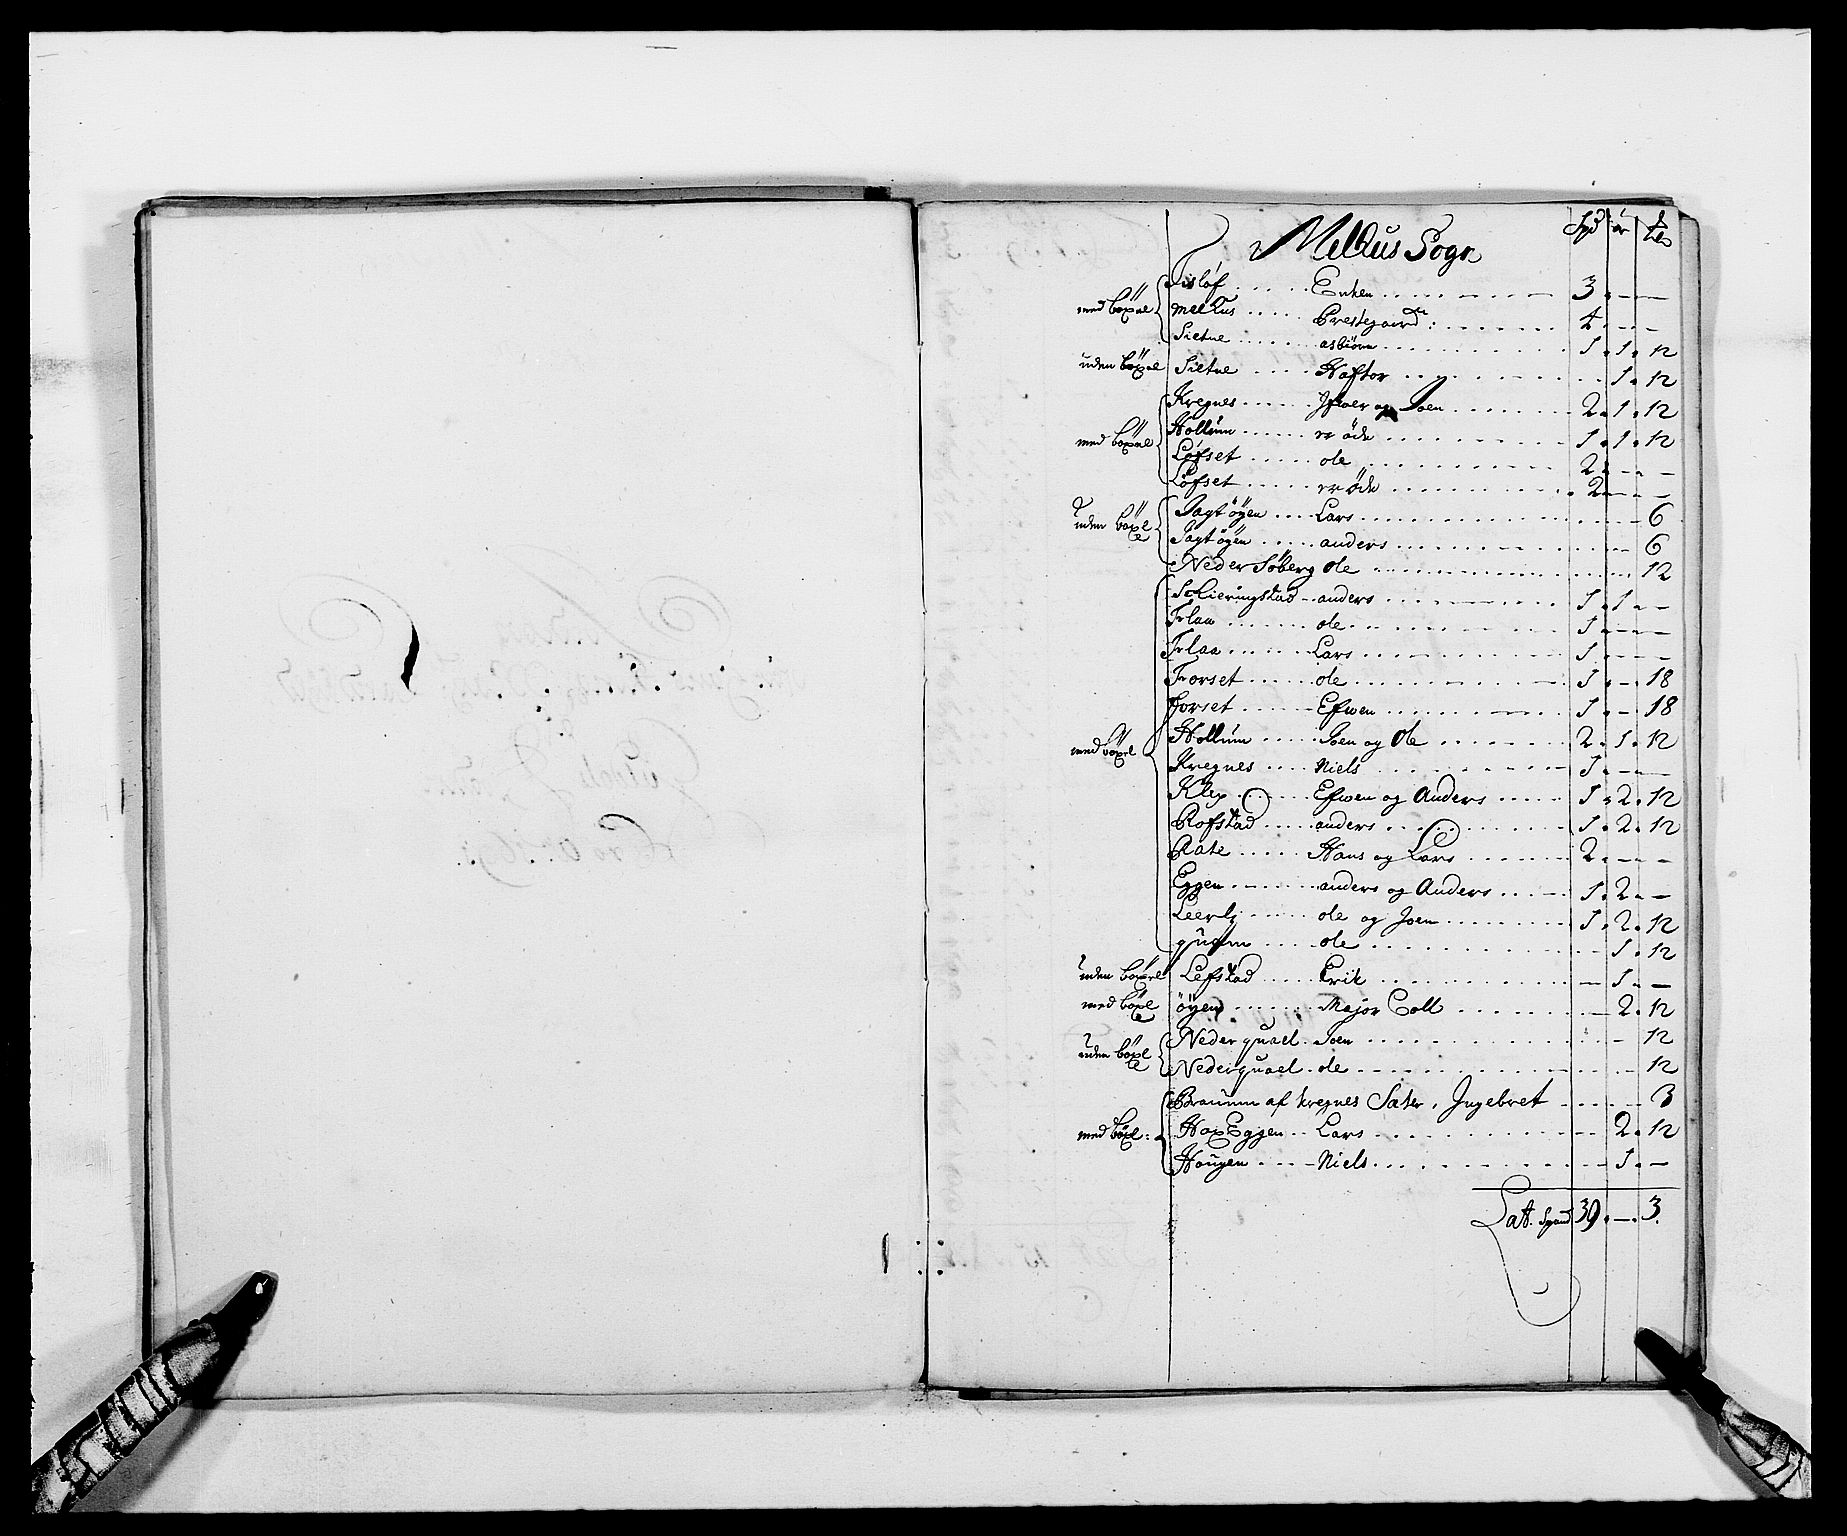 Melhus Sogn Spd ør Ls
med böxel
Tisløf Enken 3 . — —
Melhus Prestegaard 4 . — —
Sietne asbiörn 1 . 1 . 12
uden böxel Sietne Haftor 1 . 12
Kregnes Ifwer og Joen 2 . 1 . 12
med böxel Hollum er öde 1 . 1 . 12
Löfset ole 2 . — —
Löfset er öde 2 — —
uden böxl Jagtöyen Lars — 6
Jagtögen anders — 6
Neder Söberg ole 12
Schieringstad anders 1 . 1 . —
Frlaa ole 1 . — —
Frlaa Lars 1 . — —
Forset ole 1 . — 18
forset Efwen 1 . — 18
Hollum Joen og Ole 2 . 1 . 12
med böxel Kregnes Niels 1 . — —
Klex Efwen og Anders 1 . 2 . 12
Rofstad anders 1 . 2 . 12
Rate Hans og Lars 2 . — —
Eggen anders og Anders 1 . 2 . —
Leerli ole og Joen 1 . 2 . 12
quam ole 1 . 12
uden böxel Lefstad Erik — 1 . —
med böxl öyen Major Coll 2 . 12
uden böxl Neder quael Joen — 12
Neder quael ole — 12
Braunn af Kregnes Sæter, Ingebret 3
med böxl: HaxEggen Lars 2 . 12
Hougen Niels 1 . —
Latt. Spand 39 . — . 3.